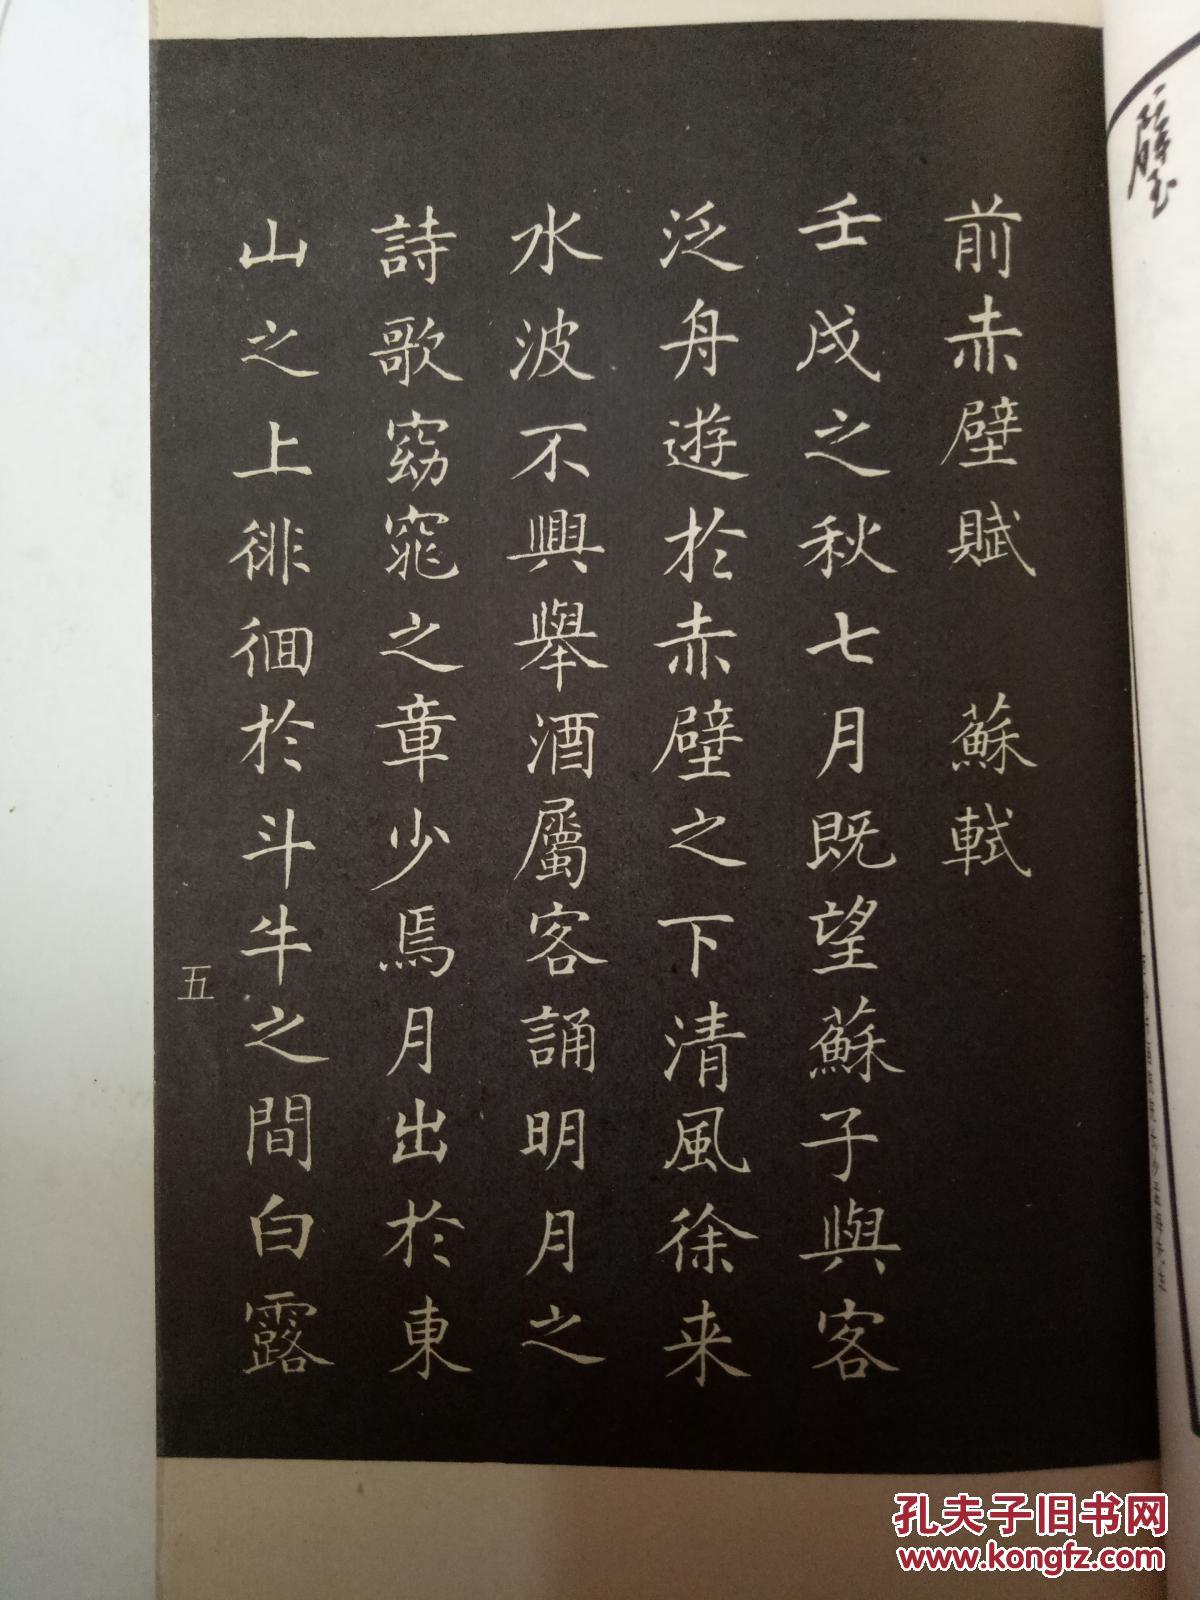 前赤壁賦 蘇軾
壬戌之秋七月既望蘇子與客
泛舟遊於赤壁之下清風徐来
水波不興舉酒屬客誦明月之
詩歌窈窕之章少焉月出於東
山之上徘徊於斗牛之間白露
五
孔夫子旧书网
www.kongfz.com